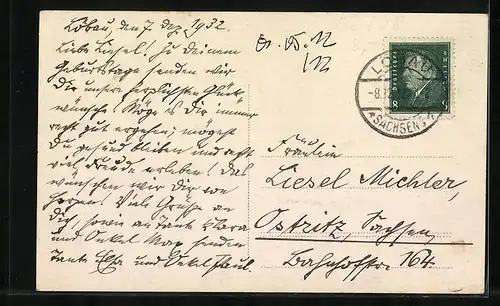 Löbau, den 7. Dez. 1932.
Liebe Liesel! Zu Deinem
Geburtstage senden wir
Dir unsere herzlichsten Glück-
wünsche! Möge es Dir immer
recht gut ergehen; mögest
Du gesund bleiben und recht
viel Freude erleben! Das
wünschen wir Dir von
Herzen! Viele Grüße an
Dich, sowie an Tante Klara
und Onkel Max senden
Tante und Onkel Paul.
LÖBAU
-8.12
SACHSEN
Deutsches Reich
8
Fräulein
Liesel Michler,
Ostritz, Sachsen,
Bahnhofstr. 164.